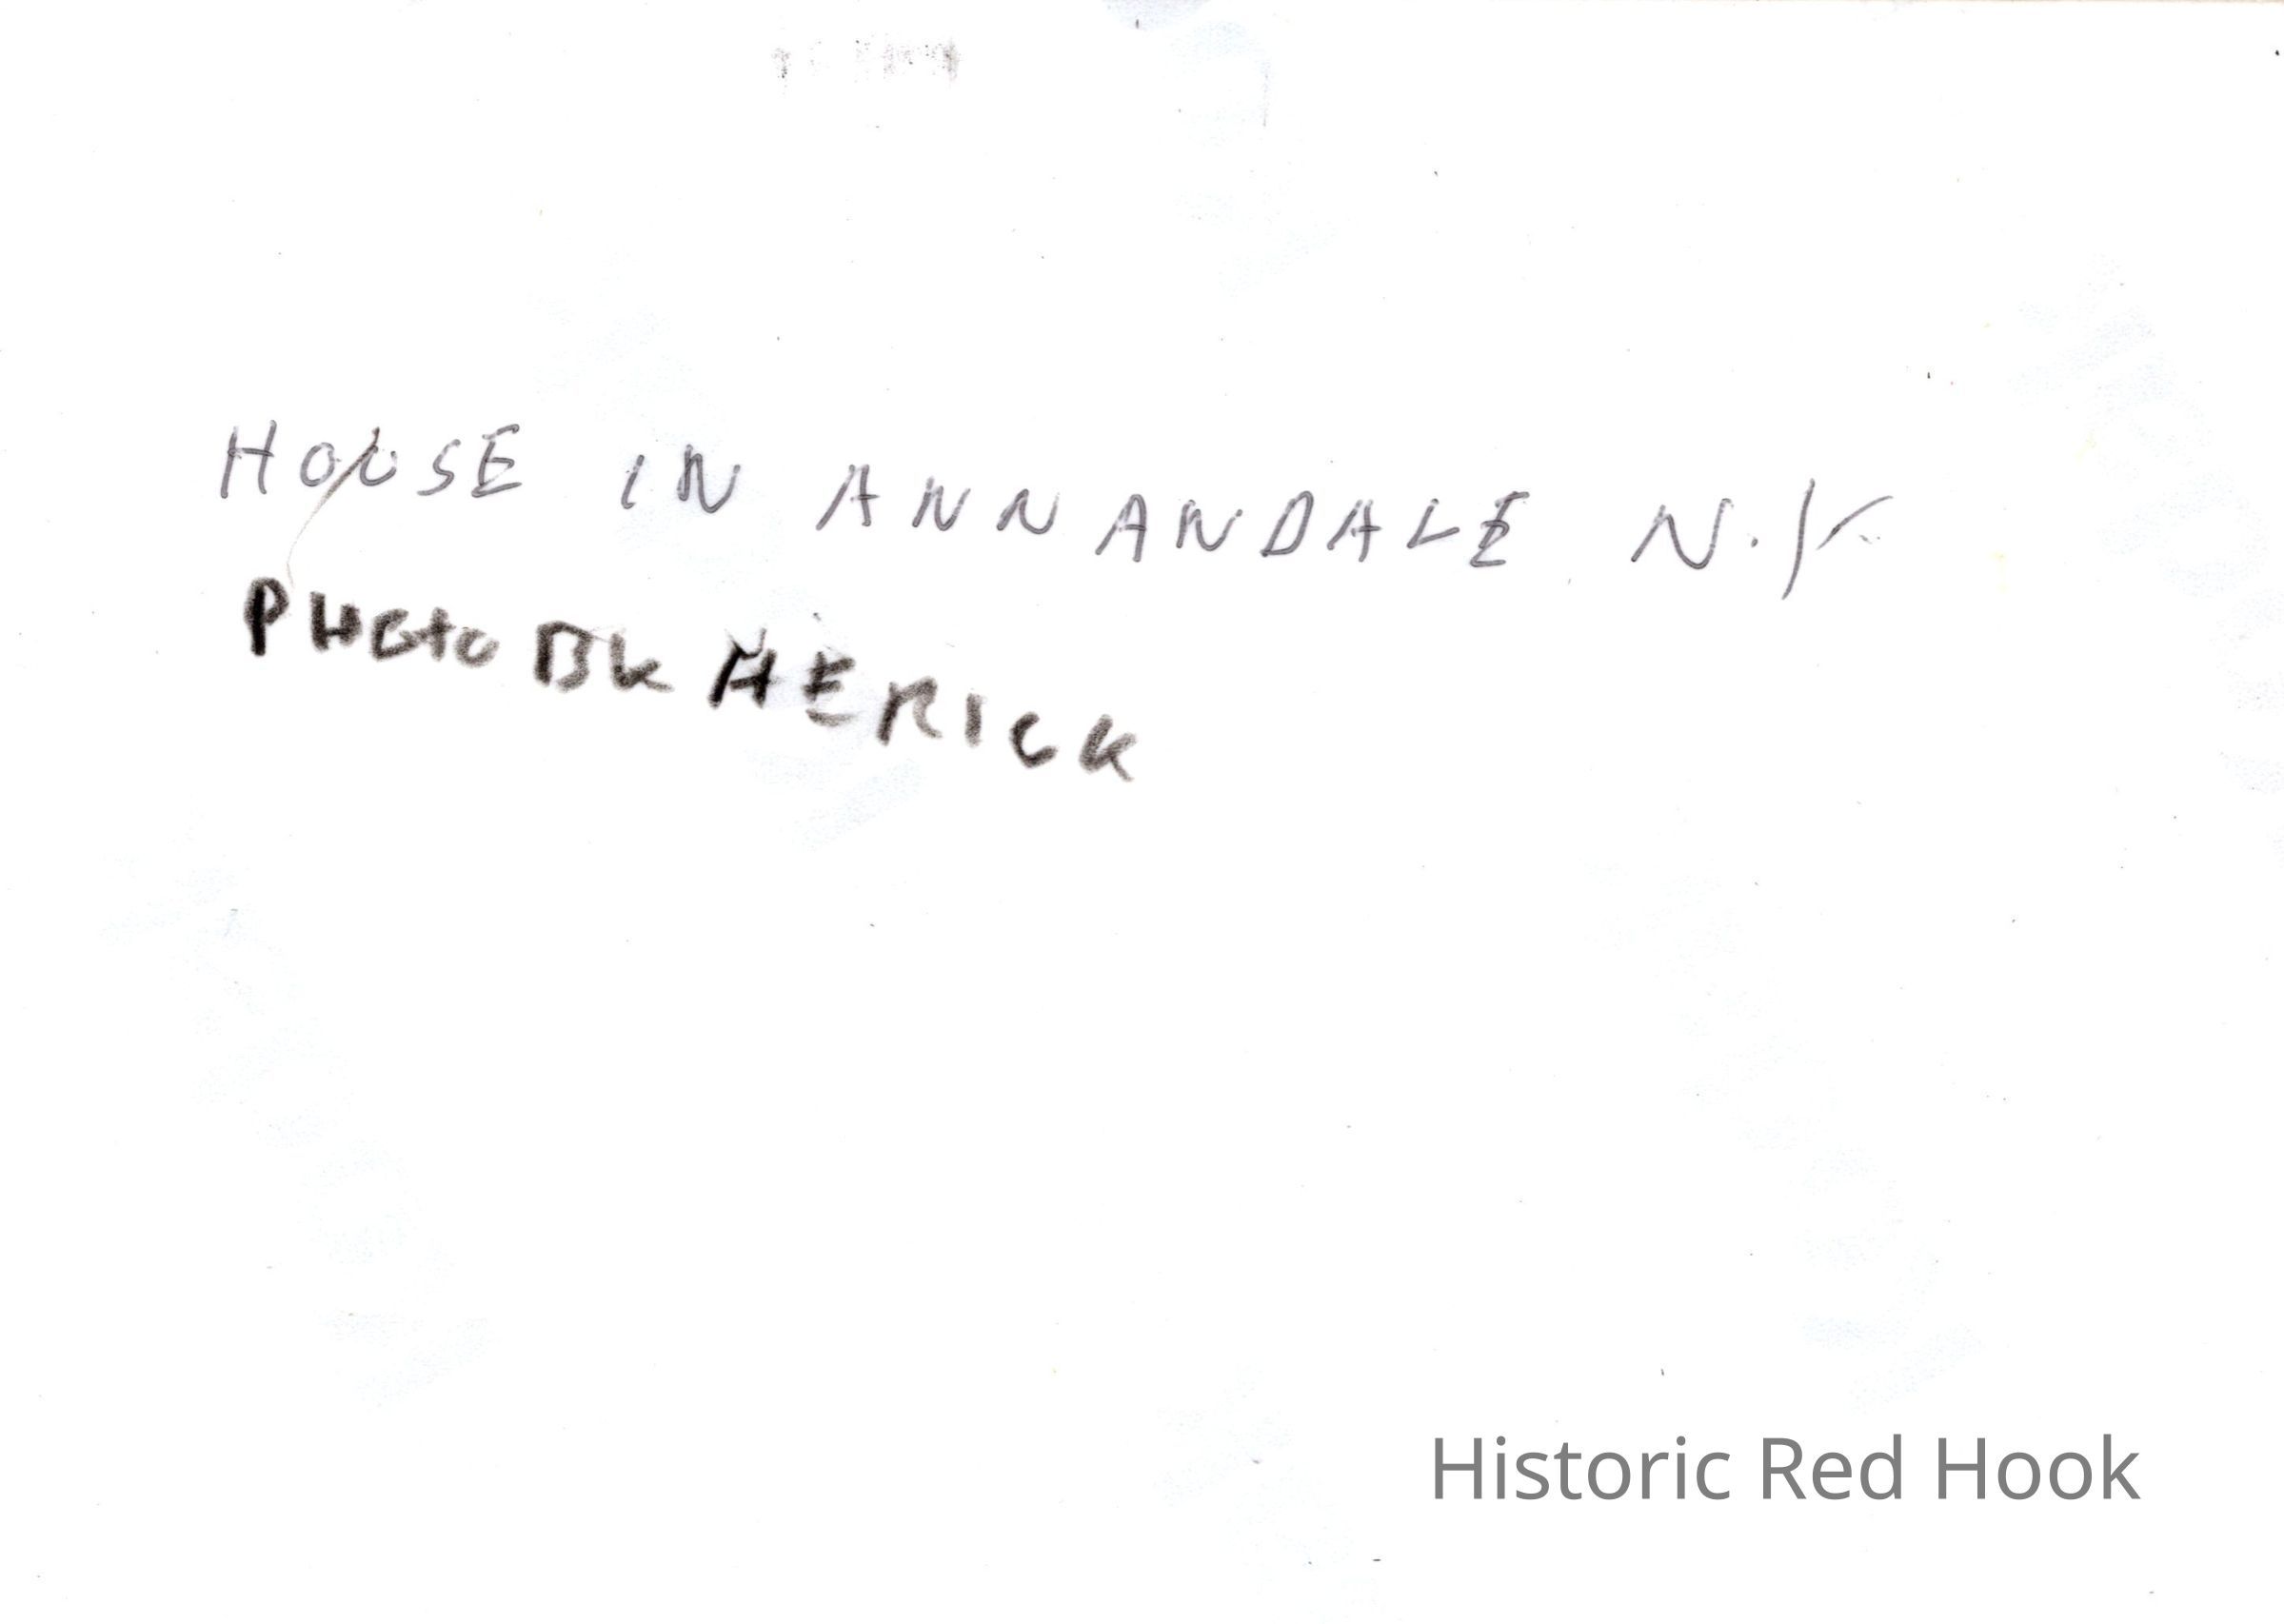 HOUSE IN ANNANDALE N.Y.
PHOTO BY HERICK
Historic Red Hook